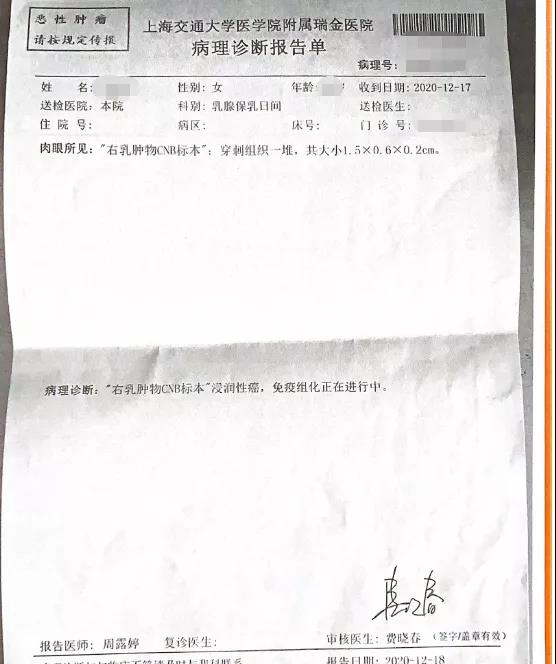 恶性肿瘤
请按规定传报
上海交通大学医学院附属瑞金医院
病理诊断报告单
病理号:
姓 名: 性别: 女 年龄: 收到日期: 2020-12-17
送检医院: 本院 科别: 乳腺保乳日间 送检医生:
住 院 号: 病区: 床号: 门 诊 号:
肉眼所见: "右乳肿物CNB标本": 穿刺组织一堆, 共大小1.5×0.6×0.2cm。
病理诊断: "右乳肿物CNB标本"浸润性癌, 免疫组化正在进行中。
报告医师: 周露婷 复诊医生: 审核医生: 费晓春 (签字/盖章有效)
报告日期: 2020-12-18